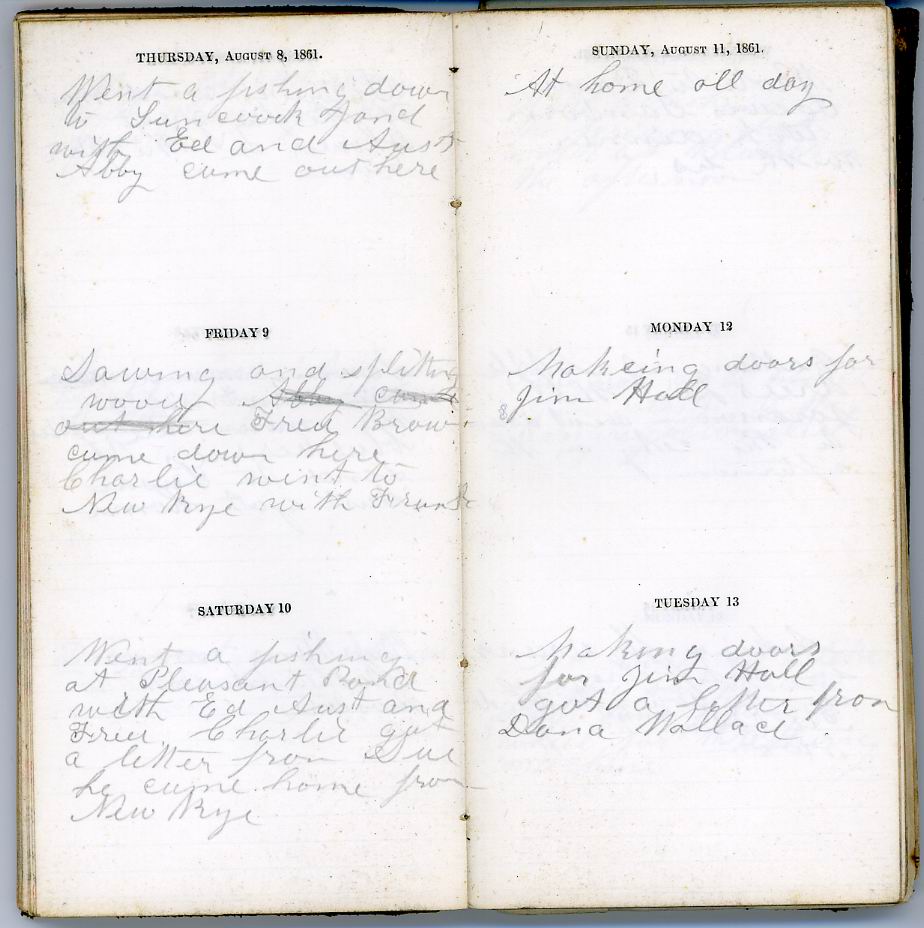 THURSDAY, AUGUST 8, 1861.
Went a fishing down
to Suncook Pond
with Ed and Aust
Abby came out here
FRIDAY 9
Sawing and splitting
wood Abby came
out here Fred Brown
came down here
Charlie went to
New Rye with Frank
SATURDAY 10
Went a fishing
at Pleasant Pond
with Ed Aust and
Fred, Charlie got
a letter from Sue
he came home from
New Rye
SUNDAY, AUGUST 11, 1861.
At home all day
MONDAY 12
Makeing doors for
Jim Hall
TUESDAY 13
Making doors
for Jim Hall
got a letter from
Dana Wallace